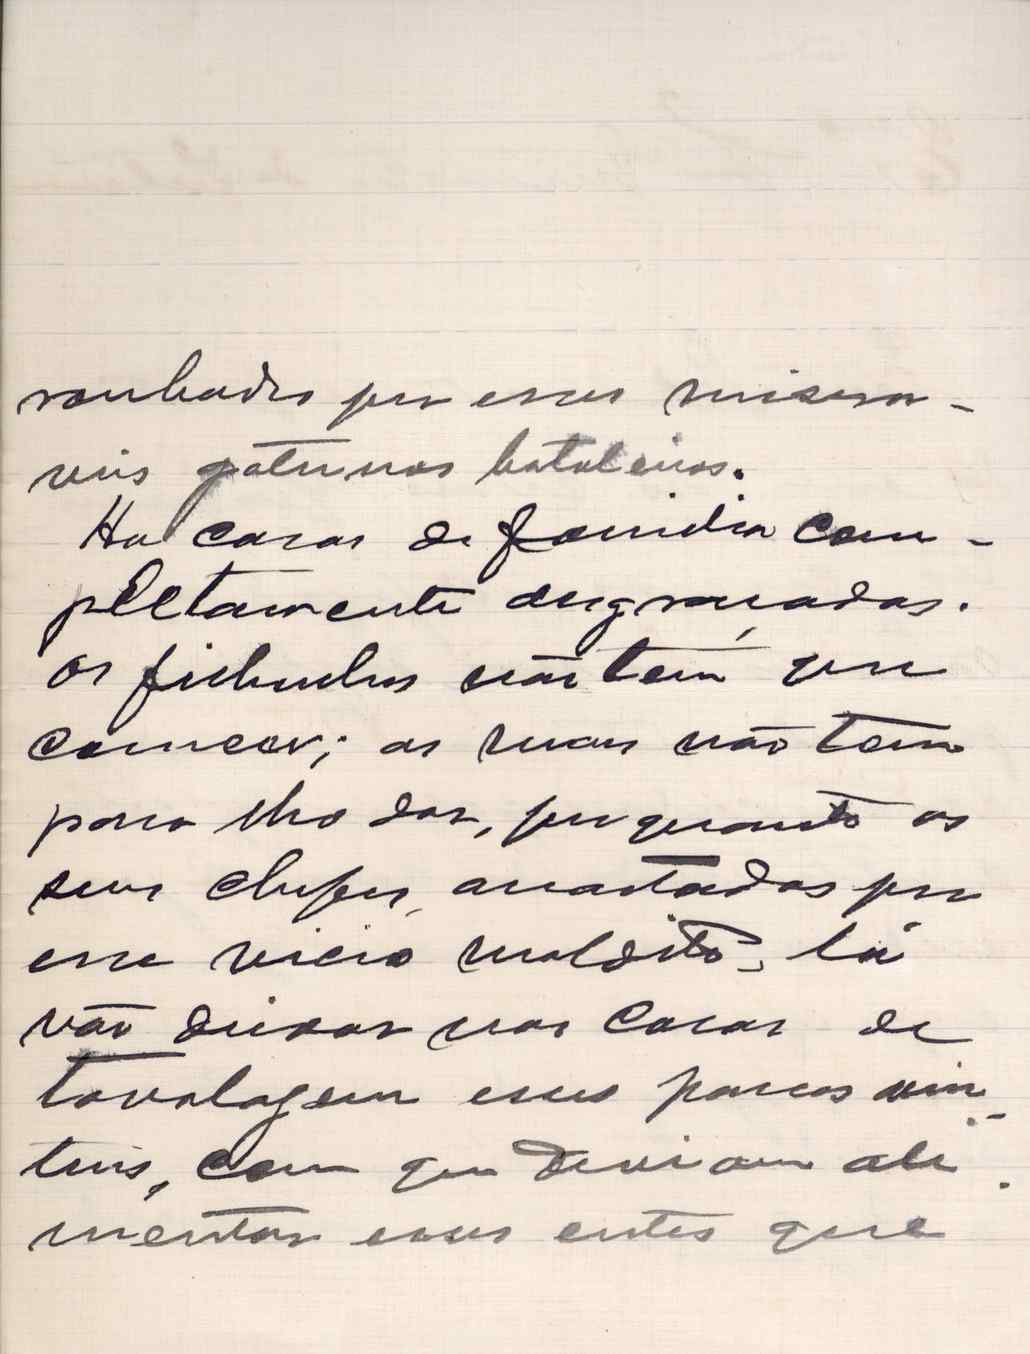 roubados por esses misera-
veis gatunos batoteiros.
Ha casas de familia com-
pletamente desgraçadas.
Os filhinhos não têm que
comer; as mais não tem
para lho dar, porquanto os
seus chefes, arrastados por
esse vicio maldito, lá
vão deixar nas casas de
tavolagem esses parcos vin-
teis, com que deviam ali-
mentar esses entes que